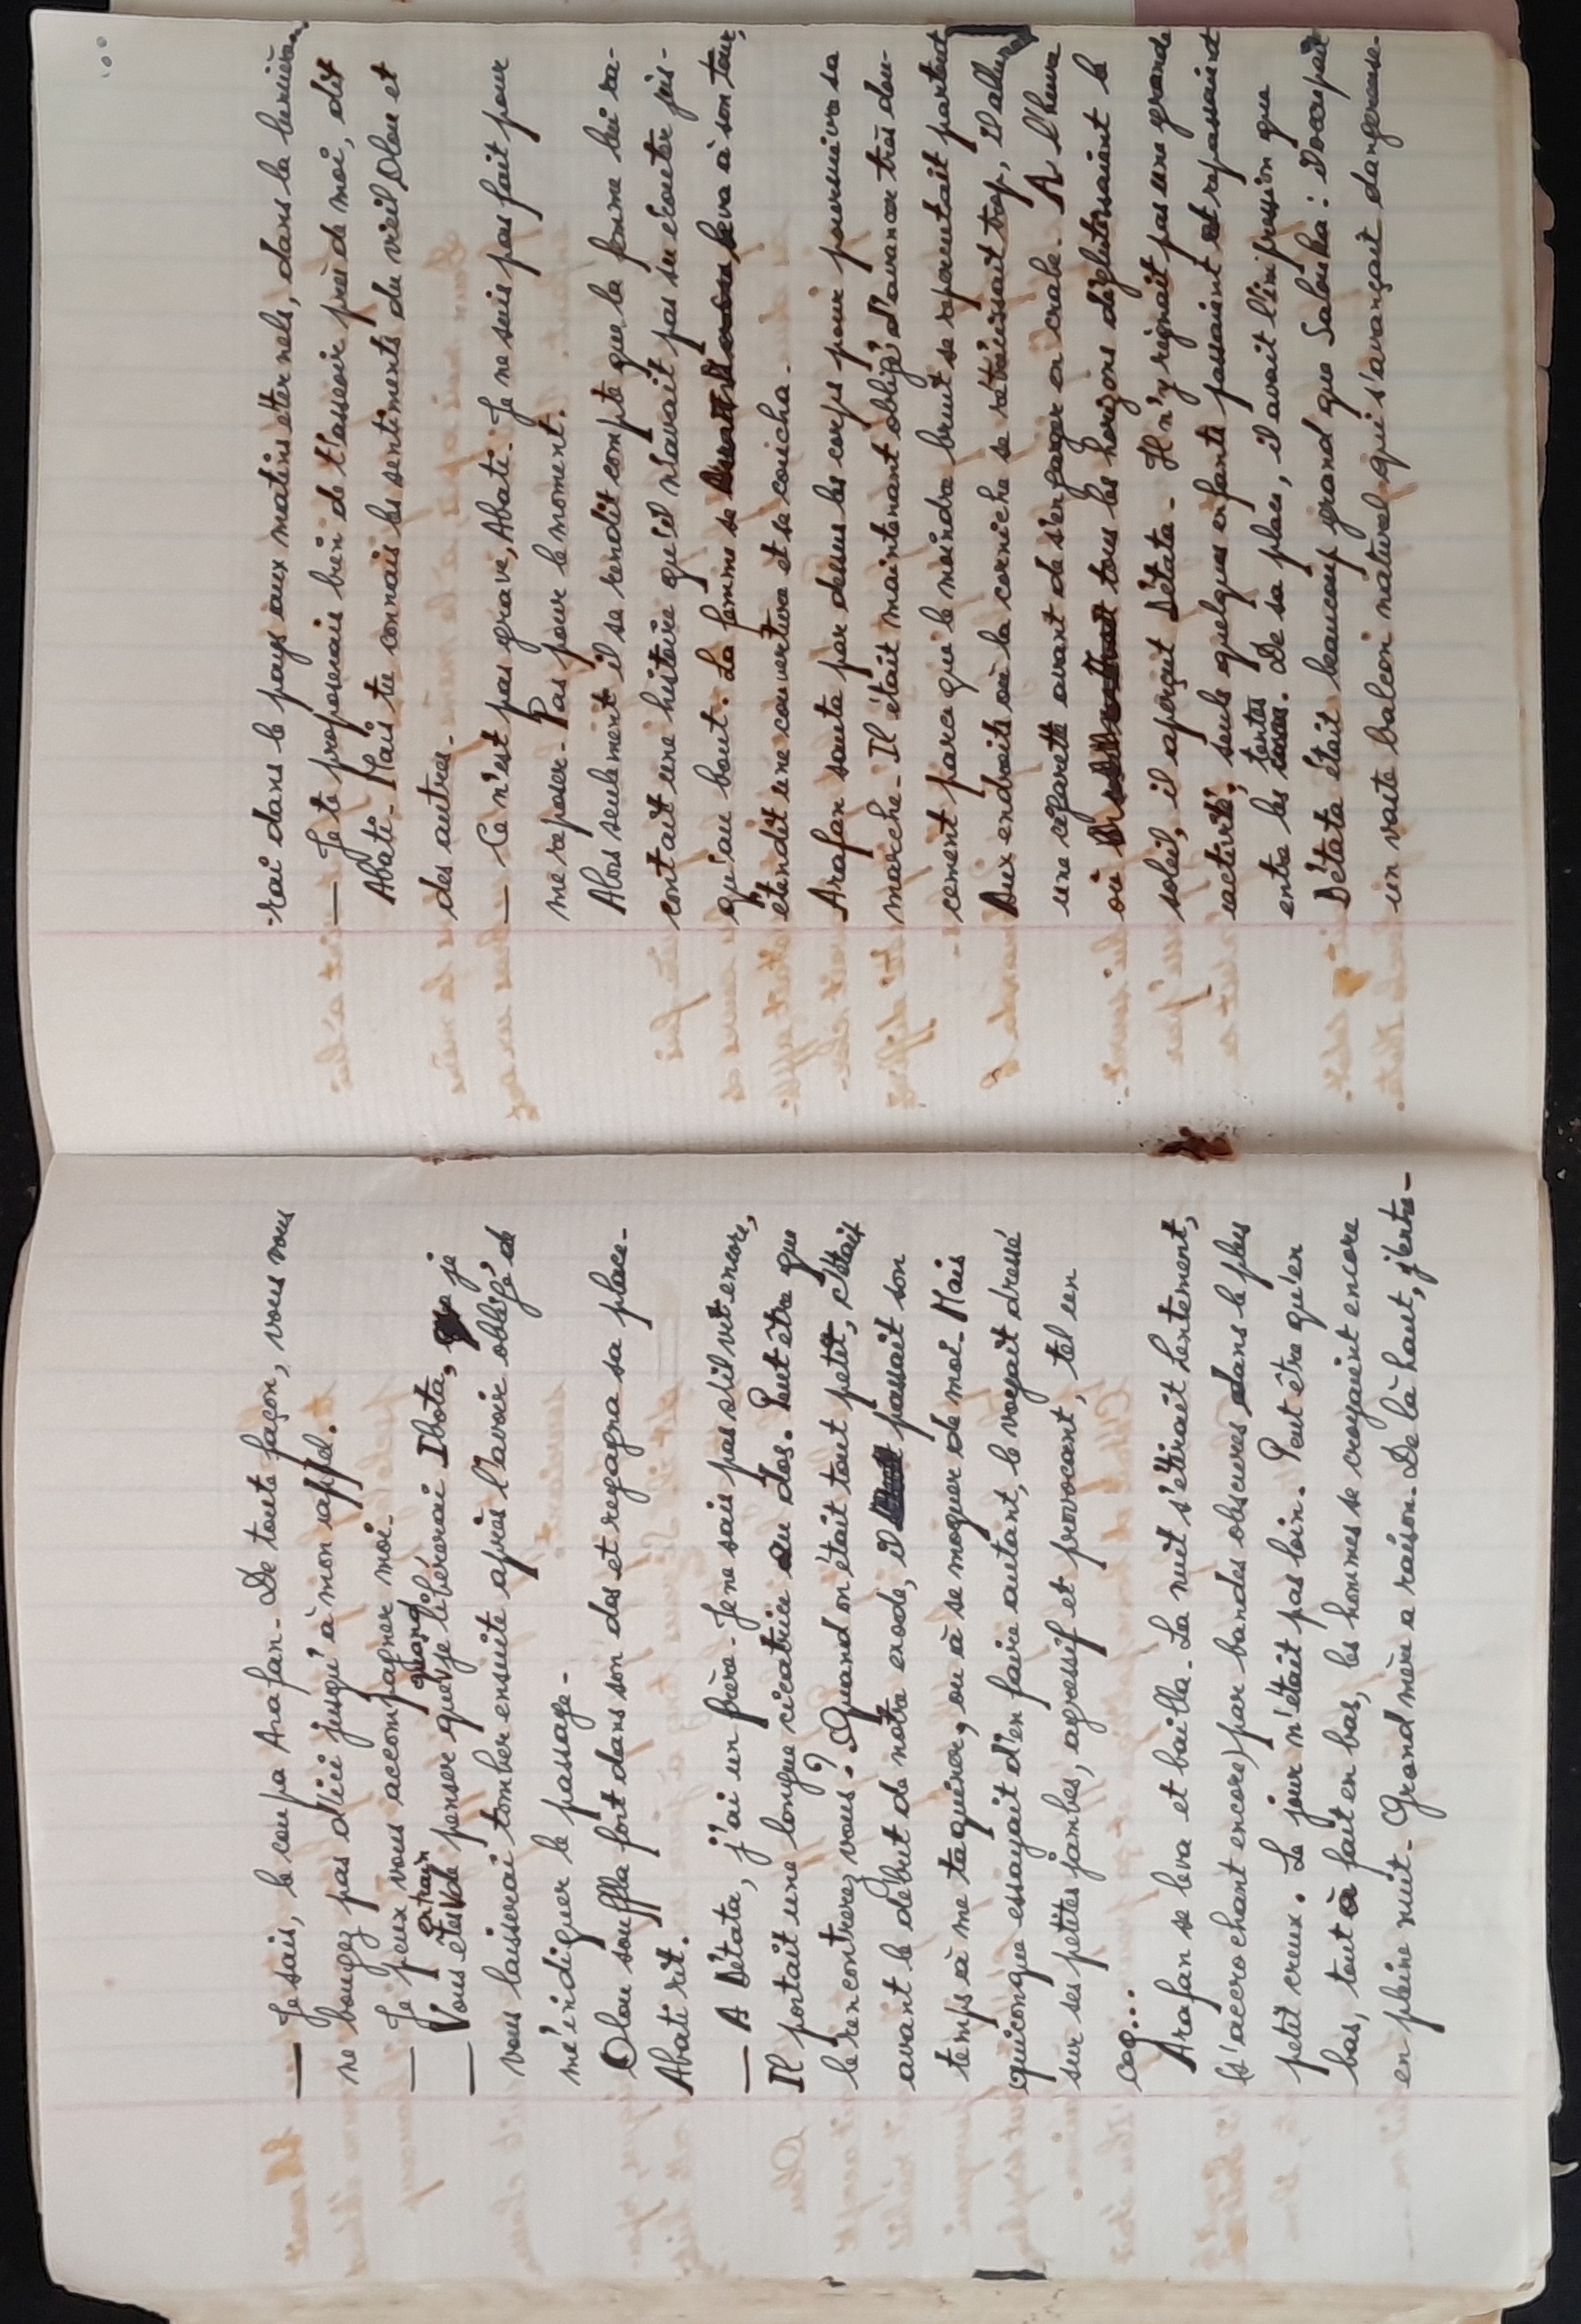 — Je sais, le coupa Arafan. De toute façon, vous vous
ne bougez pas d'ici jusqu'à mon rappel.
— Je peux vous accompagner moi.
— Vous êtes en train de penser que quand je libérerai Ibota, je
vous laisserai tomber ensuite après l'avoir obligé de
m'indiquer le passage.
Olou souffla fort dans son dos et regagna sa place.
Abati rit.
— A Détata, j'ai un frère. Je ne sais pas s'il vit encore,
Il portait une longue cicatrice au dos. Peut être que
le rencontrerez vous ? Quand on était tout petit, c'était
avant le début de notre exode, il passait son
temps à me taquiner, ou à se moquer de moi. Mais
quiconque essayait d'en faire autant, le voyait dressé
sur ses petites jambes, agressif et provocant, tel un
coq...
Arafan se leva et bailla. La nuit s'étirait lentement,
(s'accrochant encore) par bandes obscures dans le plus
petit creux. Le jour n'était pas loin. Peut être qu'en
bas, tout à fait en bas, les hommes se croyaient encore
en pleine nuit. Grand mère a raison. De là haut, j'entre-
rai dans le pays aux matins éternels, dans la lumière
— Je te proposerais bien de t'asseoir près de moi, dit
Abati. Mais tu connais les sentiments du vieil Olou et
des autres.
— Ce n'est pas grave, Abati. Je ne suis pas fait pour
me reposer. Pas pour le moment.
Alors seulement il se rendit compte que la femme lui ra-
contait une histoire qu'il n'avait pas su écouter jus-
qu'au bout. La femme se leva à son tour,
étendit une couverture et se coucha.
Arafan sauta par dessus les corps pour poursuivre sa
marche. Il était maintenant obligé d'avancer très dou-
cement parce que le moindre bruit se repercutait partout
Aux endroits où la corniche se rétrécissait trop, il alluma
une cigarette avant de s'engager en crabe. A l'heure
où tous les horizons déglutissaient le
soleil, il aperçut Détata. Il n'y régnait pas une grande
activité; seuls quelques enfants passaient et repassaient
entre les tentes. De sa place, il avait l'impression que
Détata était beaucoup grand que Salouka : Il occupait
un vaste balcon naturel qui s'avançait dangereuse-